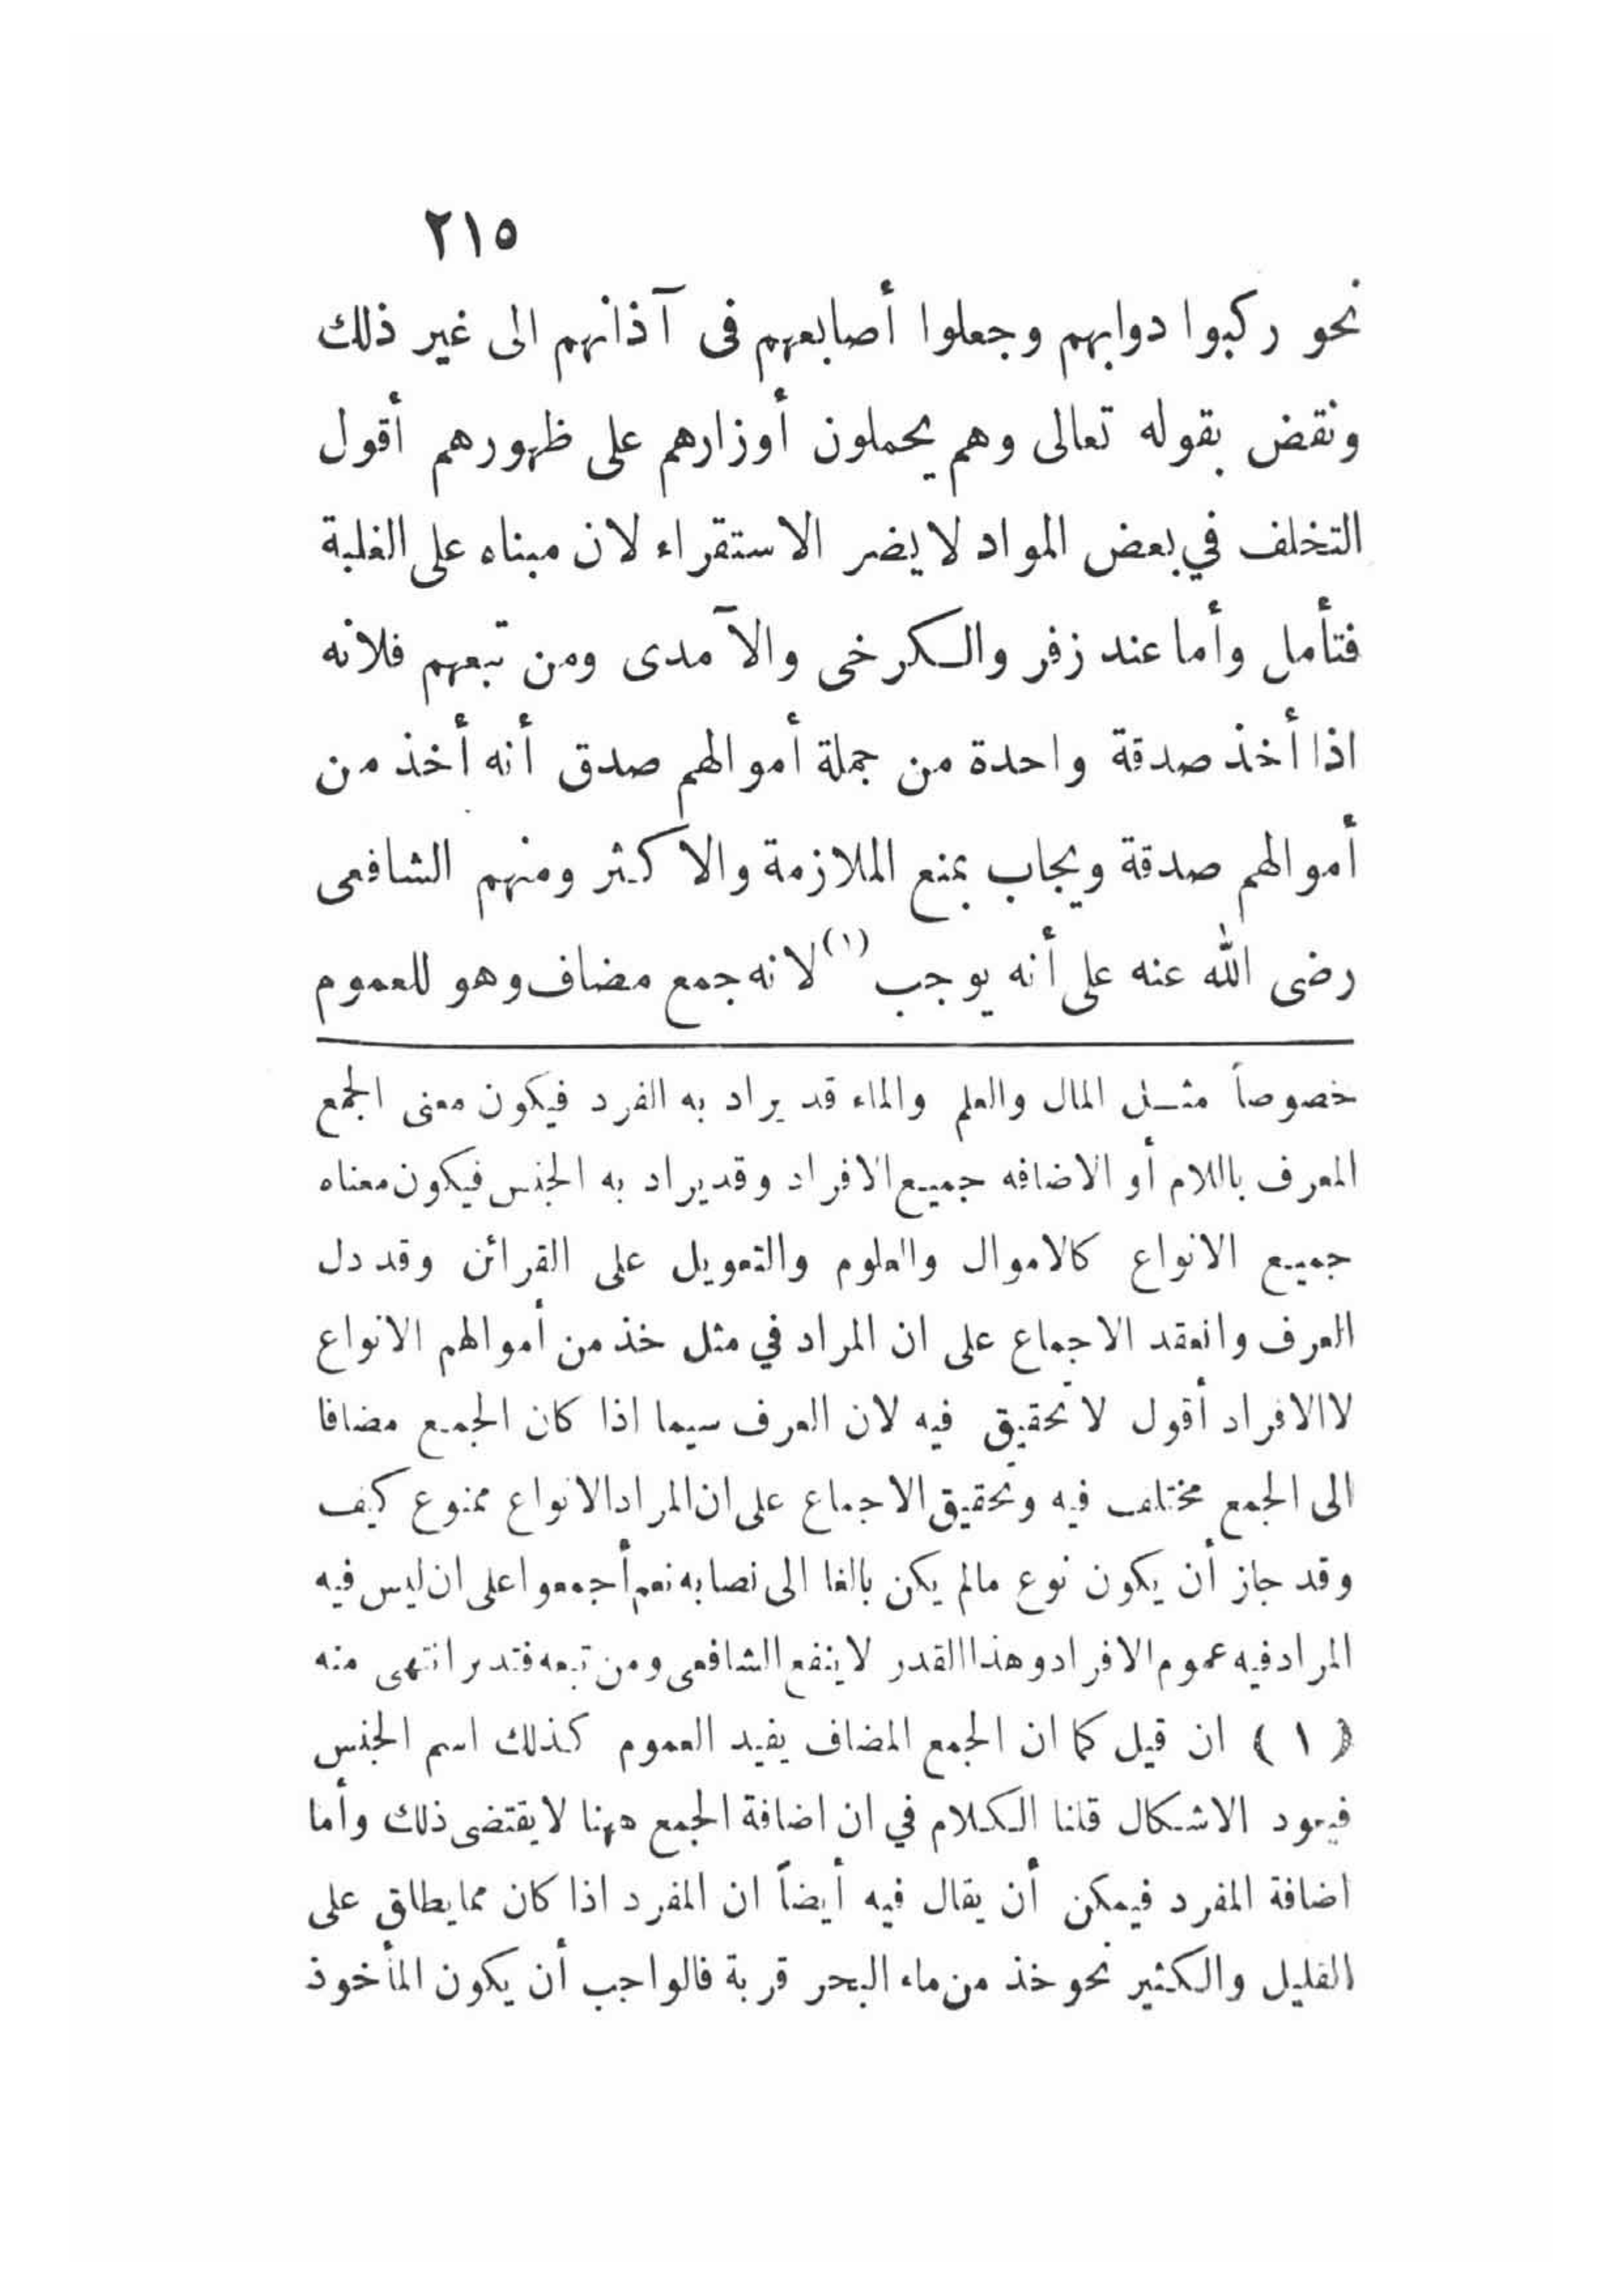 ٢١٥
نحو ركبوا دوابهم وجعلوا أصابعهم فى آذانهم الى غير ذلك
ونقض بقوله تعالى وهم يحملون أوزارهم على ظهورهم أقول
التخلف في بعض المواد لا يضر الاستقراء لان مبناه على الغلبة
فتأمل وأما عند زفر والكرخى والآمدى ومن تبعهم فلانه
اذا أخذ صدقة واحدة من جملة أموالهم صدق أنه أخذ من
أموالهم صدقة ويجاب بمنع الملازمة والاكثر ومنهم الشافعى
رضى الله عنه على أنه يوجب (١) لانه جمع مضاف وهو للعموم
خصوصاً مثل المال والعلم والماء قد يراد به الفرد فيكون معنى الجمع
المعرف باللام أو الاضافه جميع الافراد وقد يراد به الجنس فيكون معناه
جميع الانواع كالاموال والعلوم والتعويل على القرائن وقد دل
العرف وانعقد الاجماع على ان المراد في مثل خذ من أموالهم الانواع
لا الافراد أقول لا تحقيق فيه لان العرف سيما اذا كان الجمع مضافا
الى الجمع مختلف فيه وتحقيق الاجماع على ان المراد الانواع ممنوع كيف
وقد جاز أن يكون نوع مالم يكن بالغا الى نصابه نعم أجمعوا على ان ليس فيه
المراد فيه عموم الافراد وهذا القدر لا ينفع الشافعى ومن تبعه فتدبر انتهى منه
(١) ان قيل كما ان الجمع المضاف يفيد العموم كذلك اسم الجنس
فيعود الاشكال قلنا الكلام في ان اضافة الجمع ههنا لا يقتضى ذلك وأما
اضافة المفرد فيمكن أن يقال فيه أيضاً ان المفرد اذا كان مما يطلق على
القليل والكثير نحو خذ من ماء البحر قربة فالواجب أن يكون المأخوذ